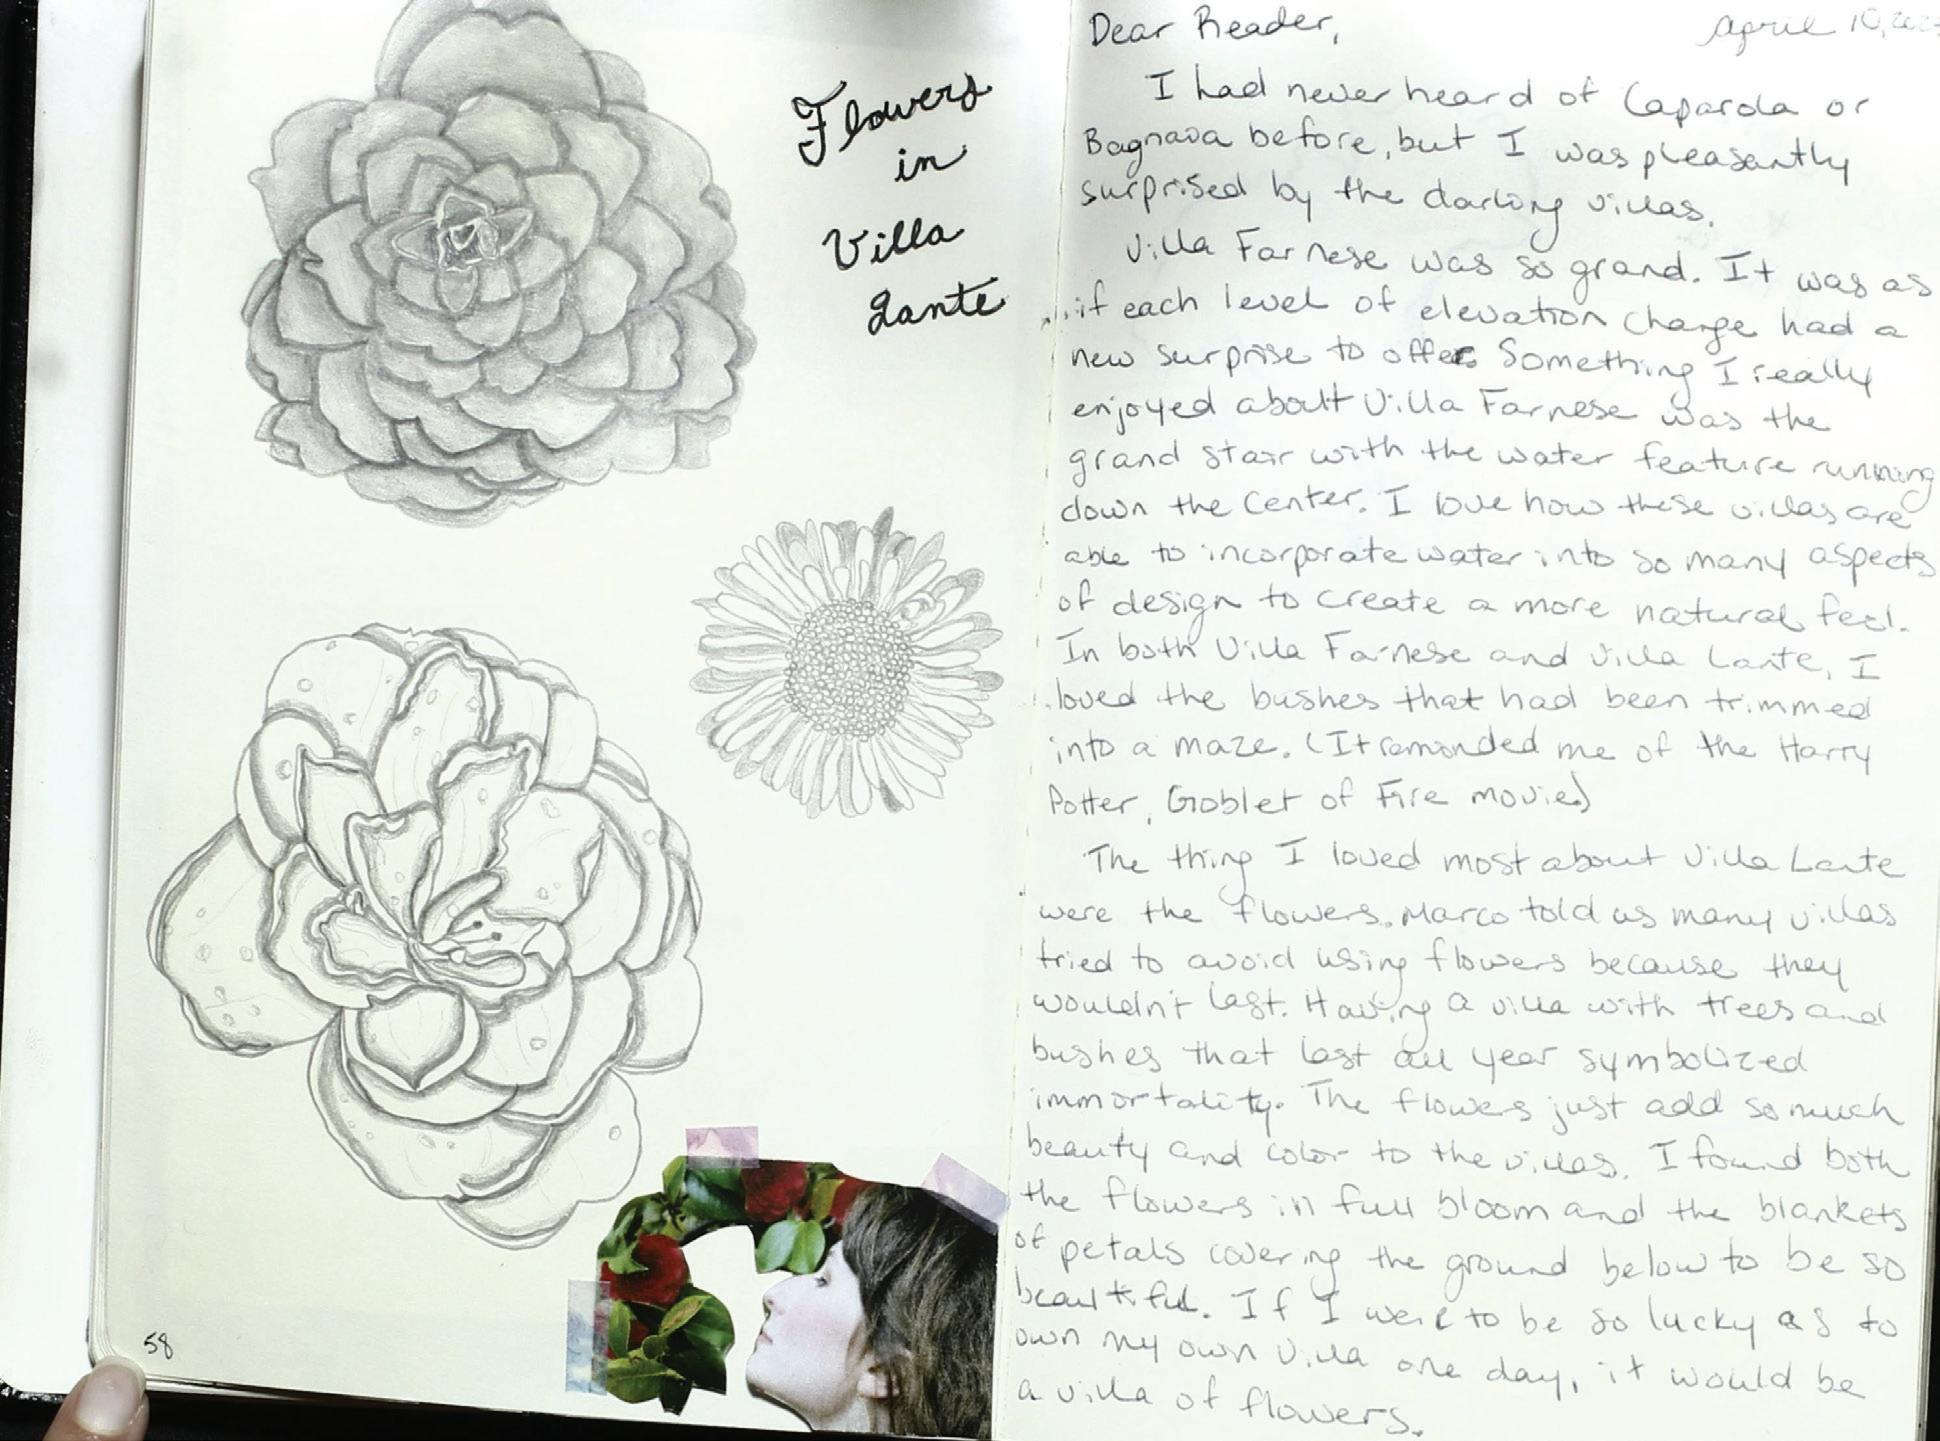 Flowers
in
Villa
Lante
58
Dear Reader,
April 10,
I had never heard of Caparola or
Bagnaia before, but I was pleasantly
surprised by the darling villas.
Villa Farnese was so grand. It was as
if each level of elevation change had a
new surprise to offer. Something I really
enjoyed about Villa Farnese was the
grand stair with the water feature running
down the center. I love how these villas are
able to incorporate water into so many aspects
of design to create a more natural feel.
In both Villa Farnese and Villa Lante, I
loved the bushes that had been trimmed
into a maze. (It reminded me of the Harry
Potter, Goblet of Fire movie)
The thing I loved most about Villa Lante
were the flowers. Marco told us many villas
tried to avoid using flowers because they
wouldn't last. Having a villa with trees and
bushes that last all year symbolized
immortality. The flowers just add so much
beauty and color to the villas. I found both
the flowers in full bloom and the blankets
of petals covering the ground below to be so
beautiful. If I were to be so lucky as to
own my own villa one day, it would be
a villa of flowers.